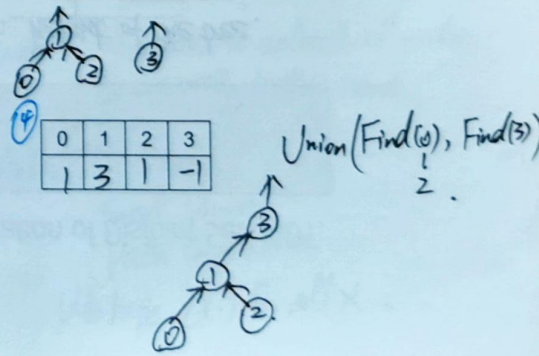 1
0 2 3
④
0 1 2 3
1 3 1 -1
Union(Find(0), Find(3))
1
2 .
3
1
0 2